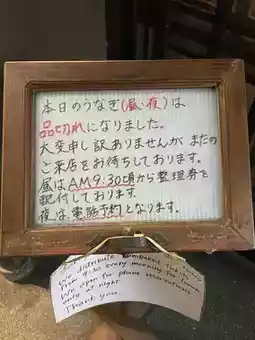 本日のうなぎ(昼・夜)は
品切れになりました。
大変申し訳ありませんが またの
ご来店をお待ちしております。
昼はAM9:30頃から整理券を
配付しております。
夜は電話予約となります。
We distribute numbered tickets
from 9:30 every morning for lunch
We open for phone reservations
only at night
Thank you.